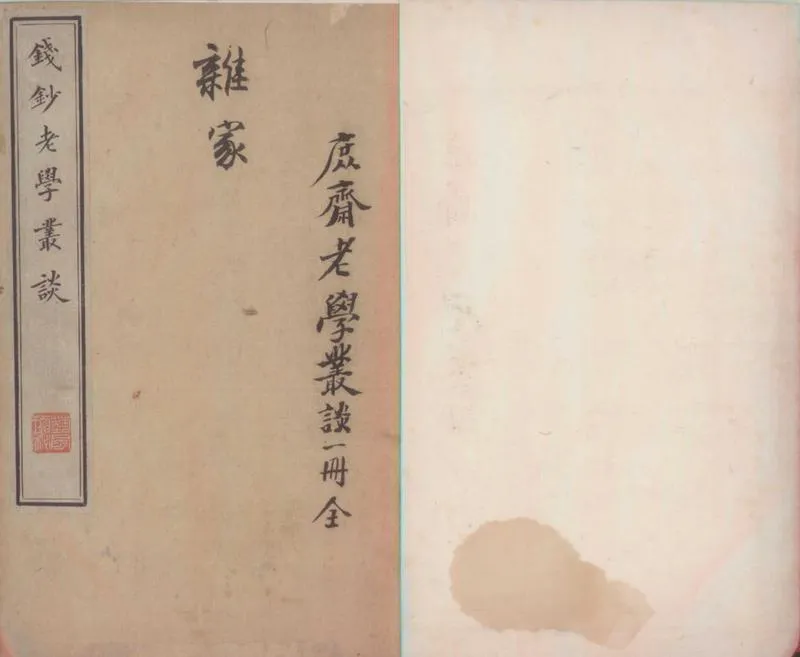 庶齋老學叢談一冊全
雜家
錢鈔老學叢談